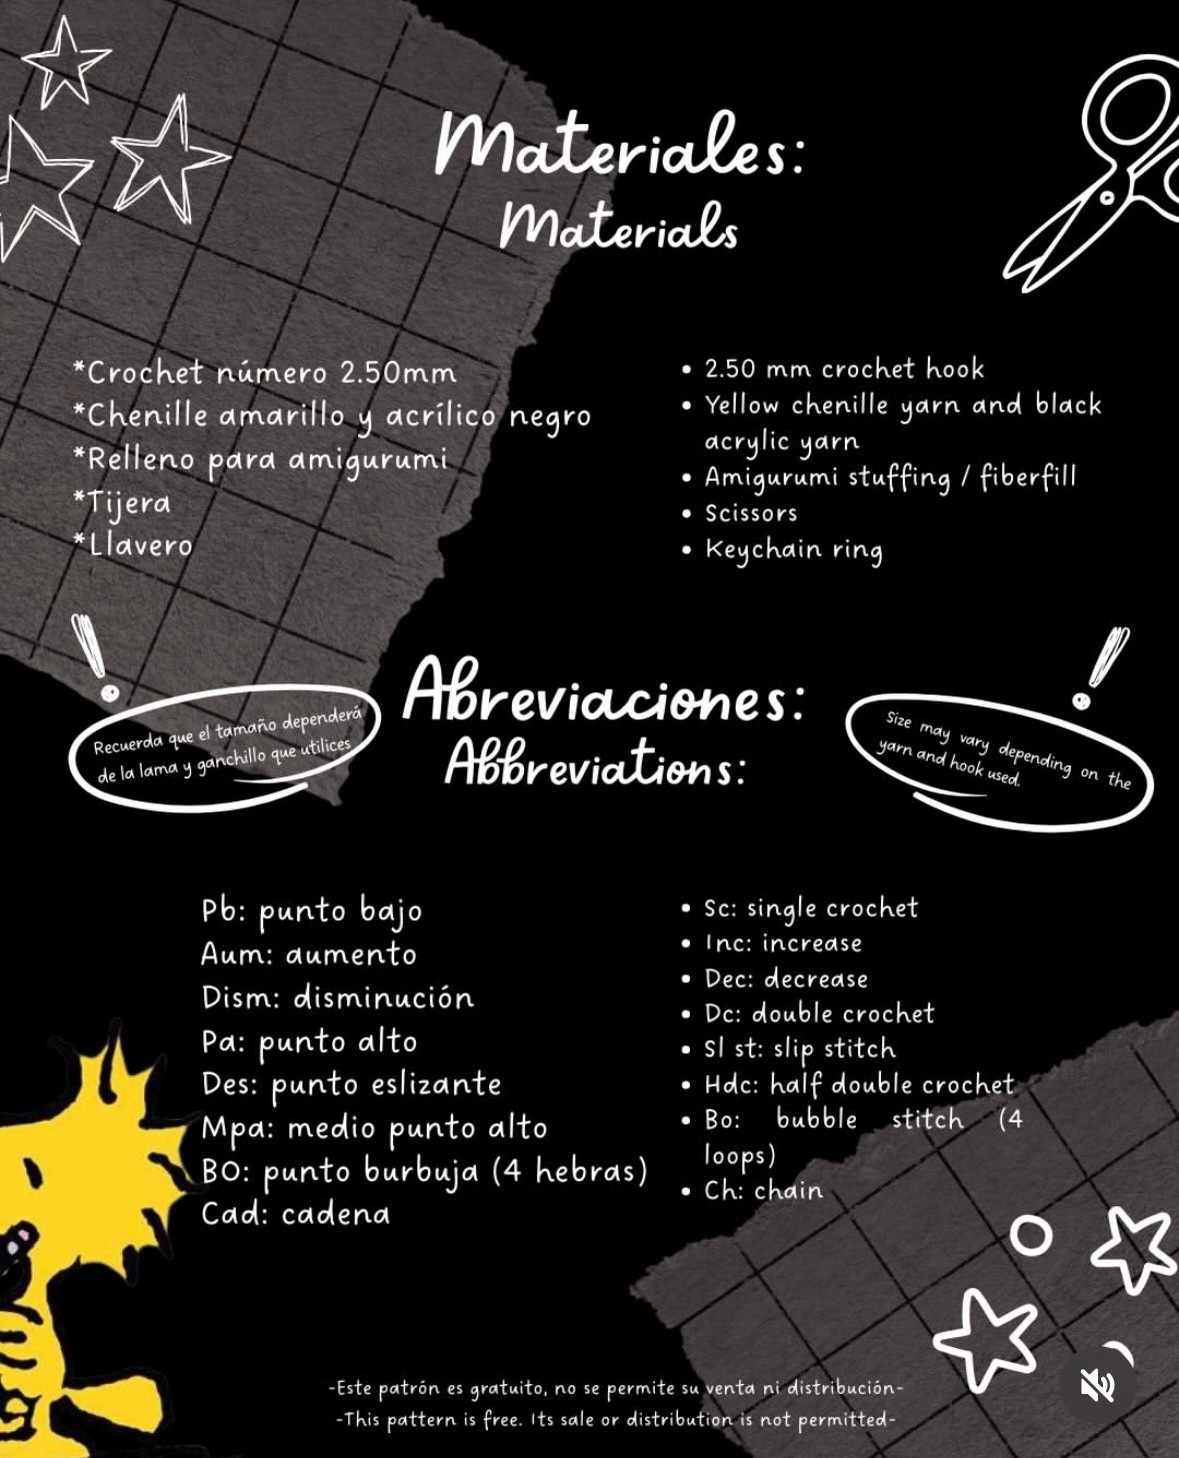 Materiales:
Materials
*Crochet número 2.50mm
*Chenille amarillo y acrílico negro
*Relleno para amigurumi
*Tijera
*Llavero
• 2.50 mm crochet hook
• Yellow chenille yarn and black
acrylic yarn
• Amigurumi stuffing / fiberfill
• Scissors
• Keychain ring
!
Recuerda que el tamaño dependerá
de la lama y ganchillo que utilices
Abreviaciones:
Abbreviations:
!
Size may vary depending on the
yarn and hook used.
Pb: punto bajo
Aum: aumento
Dism: disminución
Pa: punto alto
Des: punto eslizante
Mpa: medio punto alto
BO: punto burbuja (4 hebras)
Cad: cadena
• Sc: single crochet
• Inc: increase
• Dec: decrease
• Dc: double crochet
• Sl st: slip stitch
• Hdc: half double crochet
• Bo: bubble stitch (4
loops)
• Ch: chain
-Este patrón es gratuito, no se permite su venta ni distribución-
-This pattern is free. Its sale or distribution is not permitted-